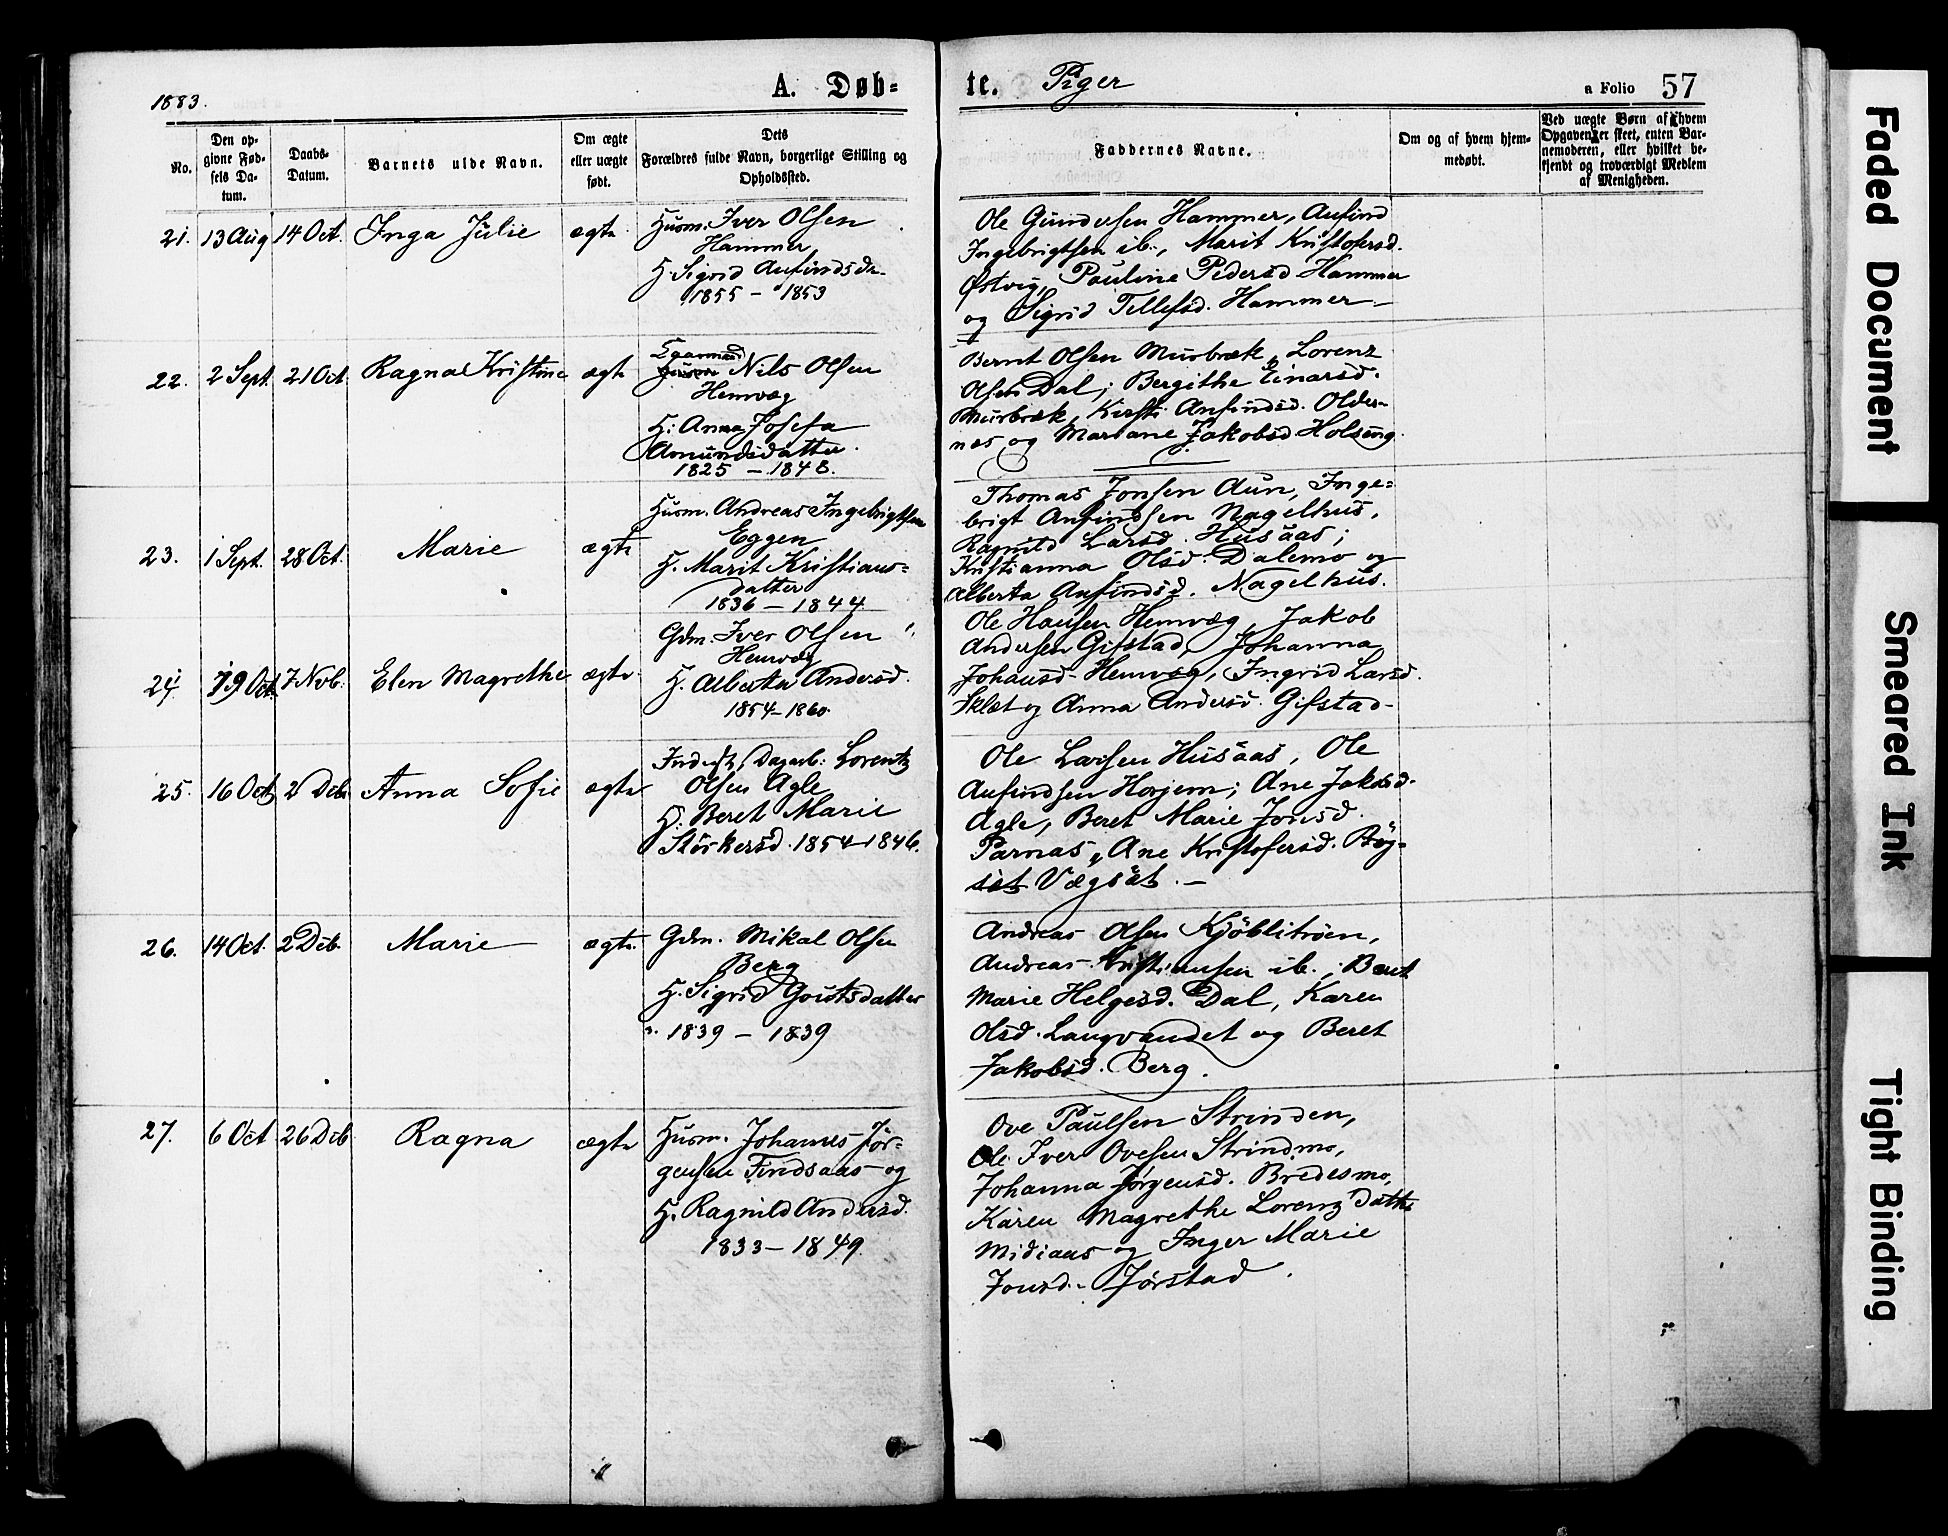 1883.
A. Døb=
te. Piger
a Folio 57
No.
Den op-
givne Fød-
sels Da-
tum.
Daabs-
Datum.
Barnets ulde Navn.
Om ægte
eller uægte
født.
Dets
Forældres fulde Navn, borgerlige Stilling og
Opholdssted.
Faddernes Navne.
Om og af hvem hjem-
medøbt.
Ved uægte Børn af hvem
Opgaven er skeet, enten Bar-
nemoderen, eller hvilket be-
kjendt og troværdigt Medlem
af Menigheden.
21. 13 Aug 14 Oct. Inga Julie ægte
Husm. Iver Olsen
Hammer
H. Sigrid Anfindsdr.
1855 - 1853
Ole Gundersen Hammer, Anfind
Ingebrigtsen ib., Marit Kristofersd.
Østvig, Pauline Pedersd Hammer
og Sigrid Tellefsd. Hammer
22. 2 Sept. 21 Oct. Ragna Kristine ægte
Husm Nils Olsen
Hemvæg
H: Anna Josefa
Amundsdatter.
1825 - 1848.
Bernt Olsen Murbræk, Lorenz
Olsen Dal; Bergithe Einarsd.
Murbræk, Kirsti Anfindsd. Older-
næs og Mariane Jakobsd Holsing.
23. 1 Sept. 28 Oct. Marie ægte
Husm. Andreas Ingebrigtsen
Eggen
H. Marit Kristians-
datter
1836 - 1844
Thomas Jonsen Aun, Inge=
brigt Anfindsen Nagelhus,
Ragnild Larsd. Husaas;
Kristianna Olsd. Dalemo og
Alberta Anfindsd. Nagelhus.
24. 19 Oct. 7 Nvb. Elen Magrethe ægte
Gdm. Iver Olsen
Hemvæg
H. Alberta Andersd.
1854-1860.
Ole Hansen Hemvæg, Jakob
Andersen Gifstad, Johanna
Johansd. Hemvæg, Ingrid Larsd.
Sklæt og Anna Andersd. Gifstad-
25. 16 Oct 2 Dcb. Anna Sofie ægte
Inderst, Dagarb: Lorentz
Olsen Agle
H: Beret Marie
Störkersd. 1854-1846.
Ole Larsen Husaas, Ole
Anfindsen Horjem; Ane Jakobsd.
Agle, Beret Marie Jonsd.
Parnas, Ane Kristofersd. Bøg-
set Vægset. -
26. 14 Oct. 2 Dcb. Marie ægte
Gdm. Mikal Olsen
Berg
H. Sigrid Goutsdatter
1839 - 1839
Andreas Olsen Kjöblitröen,
Andreas Kristiansen ib.; Beret
Marie Helgesd. Dal, Karen
Olsd. Langvandet og Beret
Jakobsd. Berg.
27. 6 Oct 26 Dcb Ragna ægte
Husm. Johannes Jör-
gensen Findsaas og
H. Ragnild Andersd.
1833 - 1849.
Ove Paulsen Strinden,
Ole Iver Ovesen Strindmo,
Johanna Jørgensd. Bredesmo,
Karen Magrethe Lorenz Datter
Midiaas og Inger Marie
Jonsd. Jørstad.
Faded Document
Smeared Ink
Tight Binding